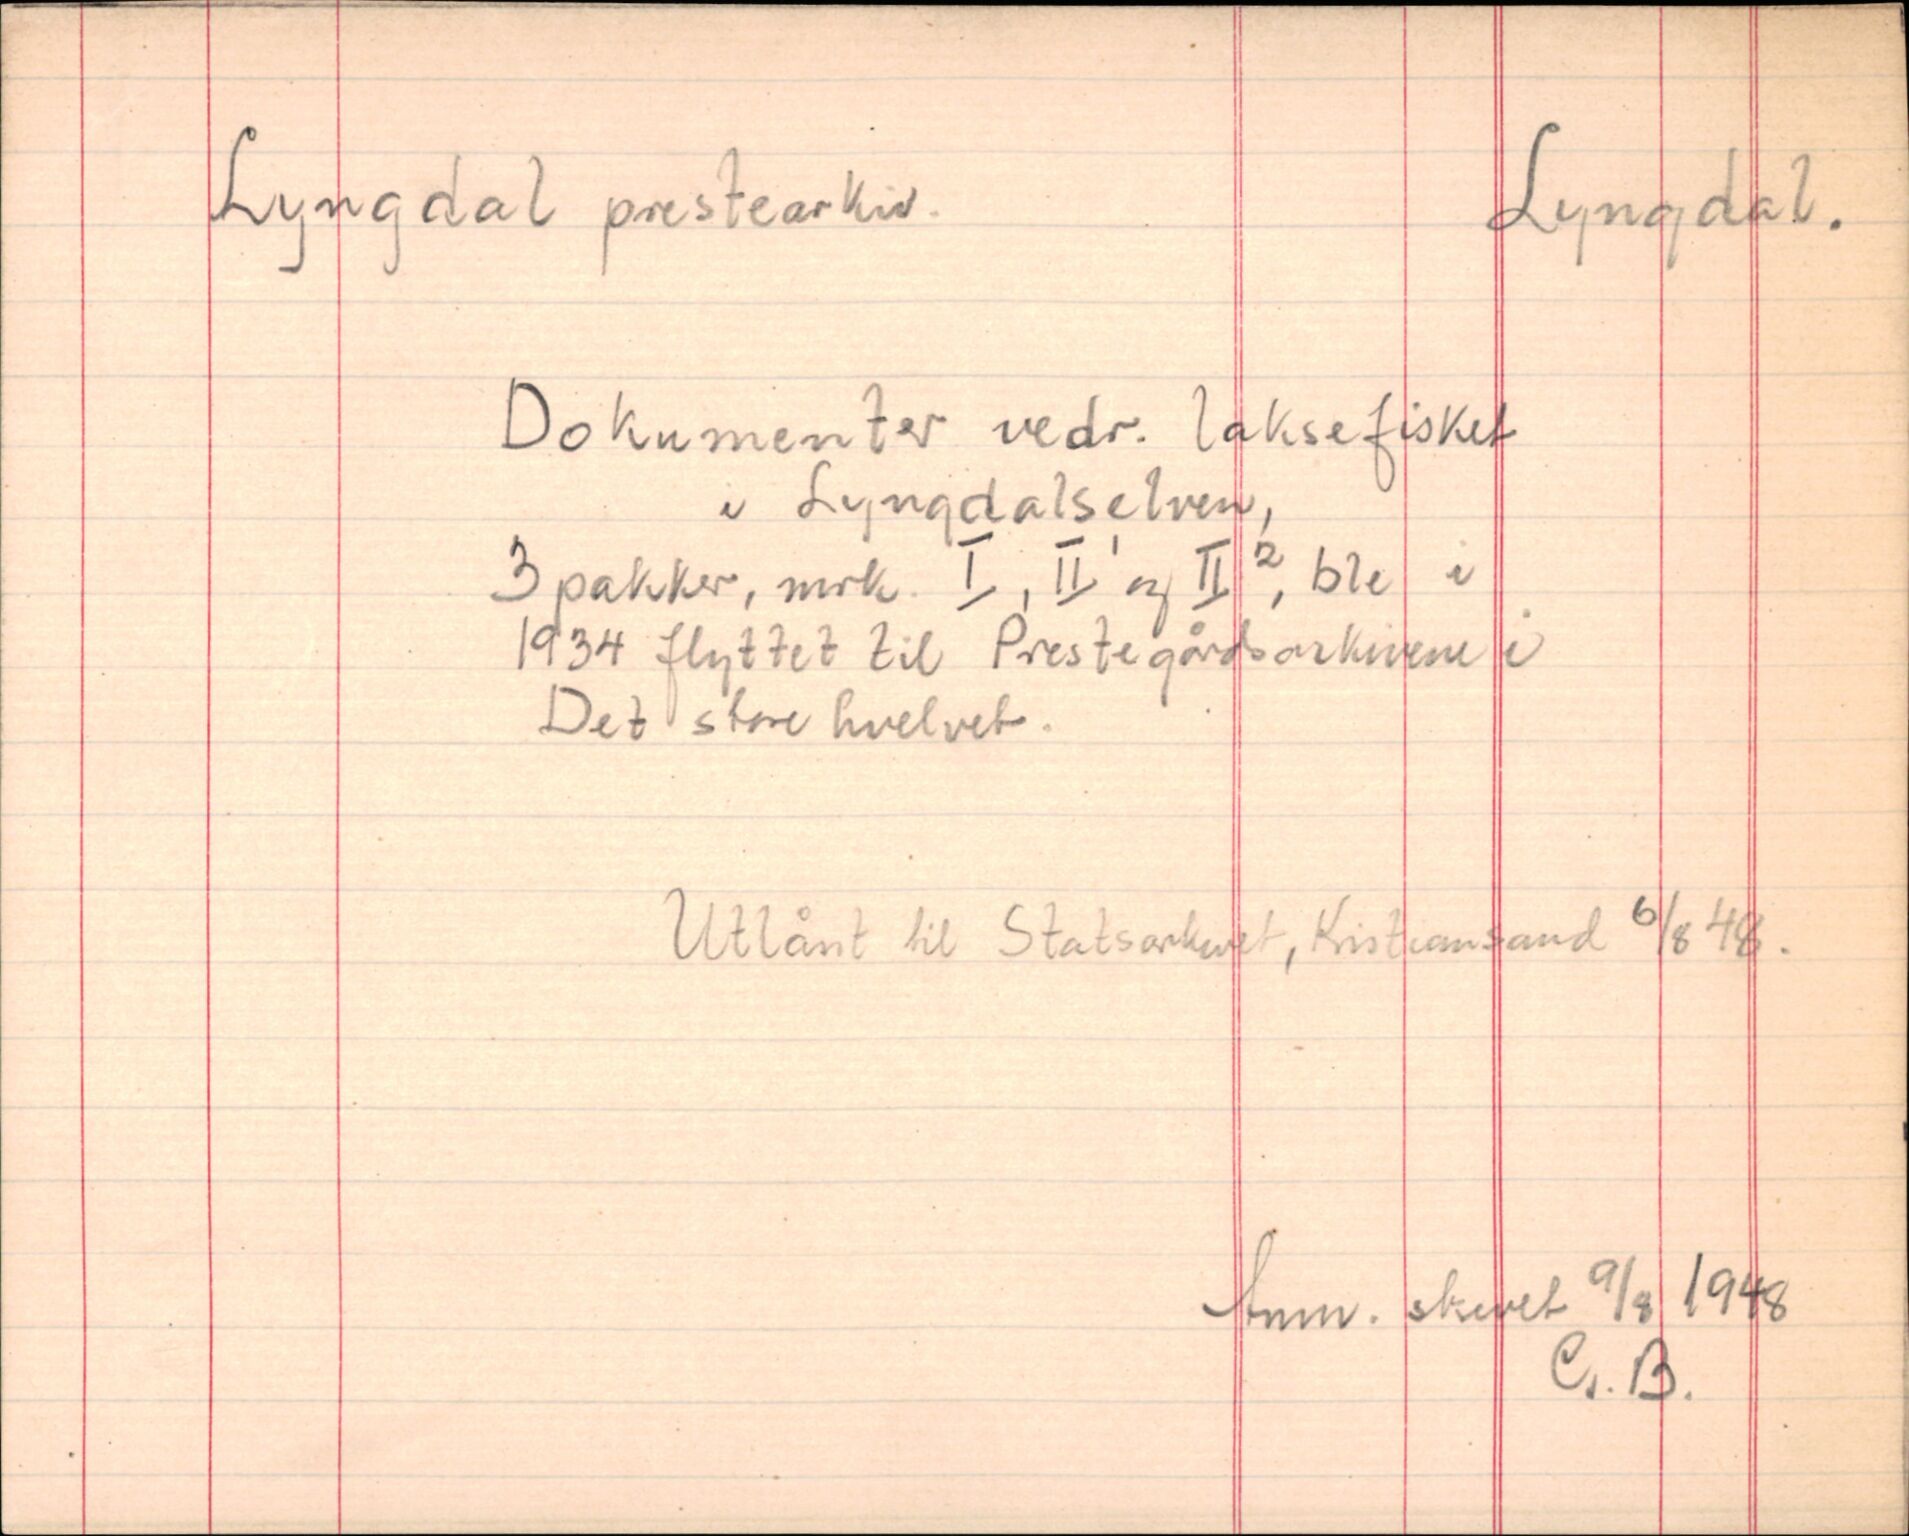 Lyngdal prestearkiv. Lyngdal.
Dokumenter vedr. laksefisket
i Lyngdalselven,
3 pakker, mrk. I, II¹ og II², ble i
1934 flyttet til Prestegårdsarkivene i
Det store hvelvet.
Utlånt til Statsarkivet, Kristiansand 6/8 48.
Anm. skrevet 9/8 1948
G. B.